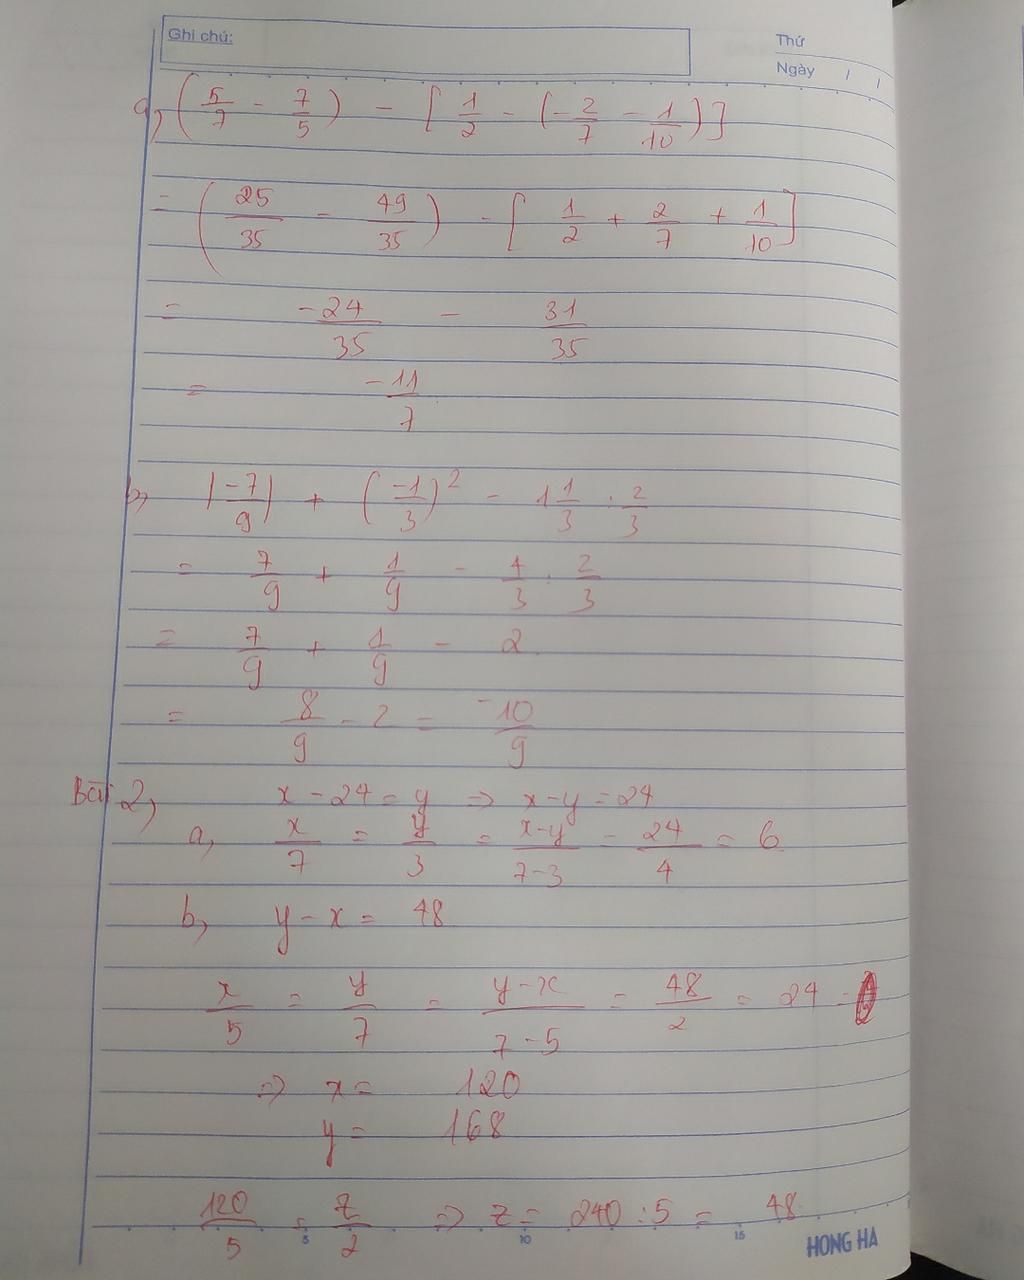 Ghi chú:
Thứ
Ngày / /
a, (5/7 - 7/5) - [1/2 - (-2/7 - 1/10)]
= (25/35 - 49/35) - [1/2 + 2/7 + 1/10]
= -24/35 - 31/35
= -11/7
b, |-7/9| + (-1/3)² - 1 1/3 : 2/3
= 7/9 + 1/9 - 4/3 : 2/3
= 7/9 + 1/9 - 2
= 8/9 - 2 = -10/9
Bài 2, x - 24 = y => x - y = 24
a, x/7 = y/3 = x-y/7-3 = 24/4 = 6
b, y - x = 48
x/5 = y/7 = y-x/7-5 = 48/2 = 24 =
=> x = 120
y = 168
120/5 = z/2 => z = 240 : 5 = 48
5 10 15
HONG HA